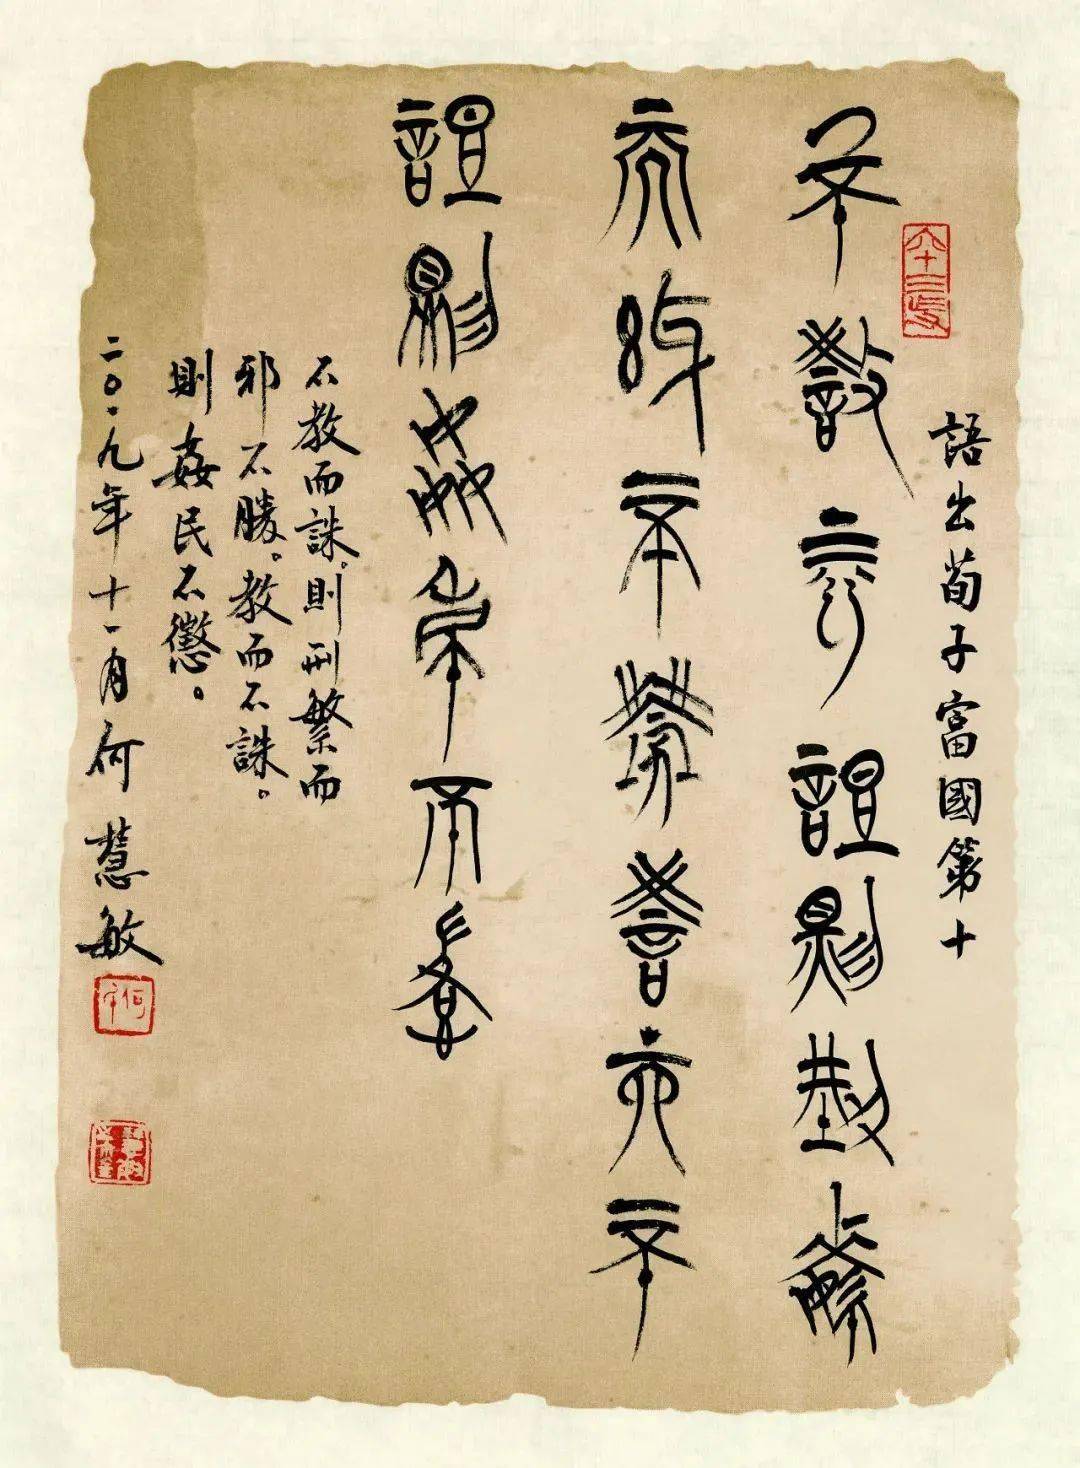 語出荀子富國第十
不教而誅則刑繁
而邪不勝教而不
誅則姦民不懲
不教而誅。則刑繁而
邪不勝。教而不誅。
則姦民不懲。
二〇一九年十一月何慧敏